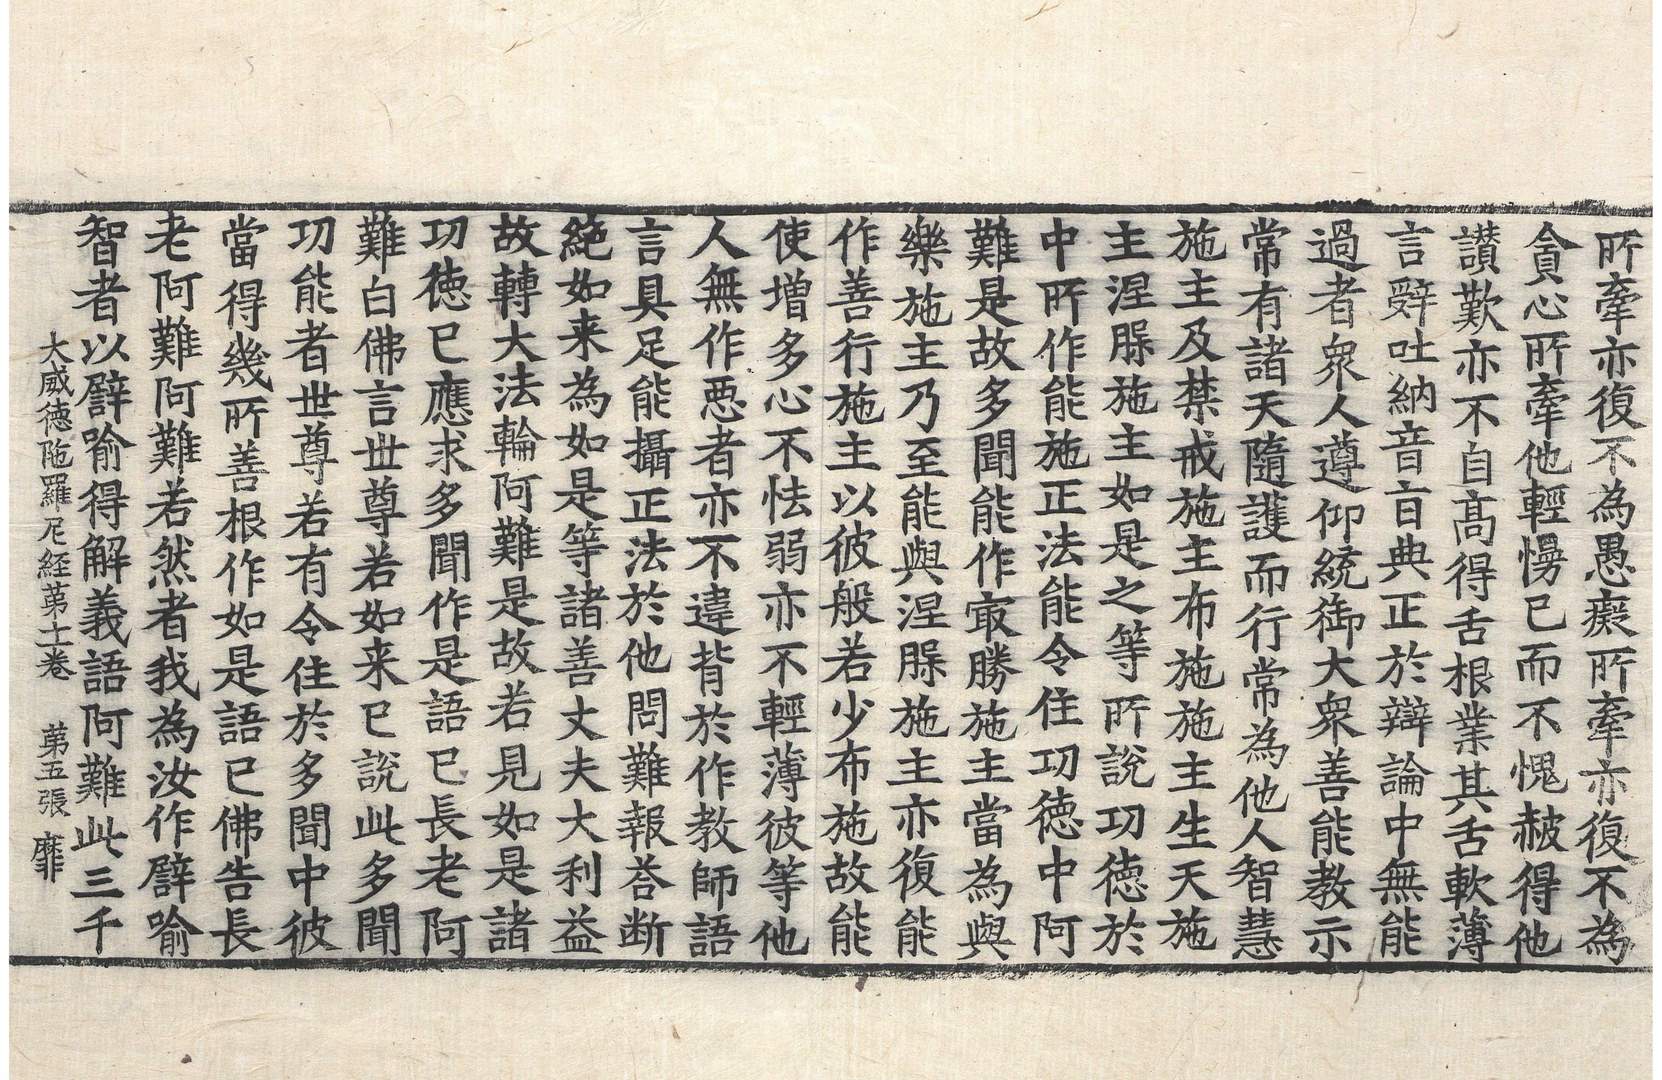 所牽亦復不為愚癡所牽亦復不為
貪心所牽他輕慢已而不愧赧得他
讃歎亦不自高得舌根業其舌軟薄
言辝吐納音旨典正於辯論中無能
過者衆人遵仰統御大衆善能教示
常有諸天隨護而行常為他人智慧
施主及禁戒施主布施施主生天施
主涅脲施主如是之等所說功德於
中所作能施正法能令住功徳中阿
難是故多聞能作㝡勝施主當為與
樂施主乃至能與涅脲施主亦復能
作善行施主以彼般若少布施故能
使增多心不怯弱亦不輕薄彼等他
人無作悪者亦不違背於作教師語
言具足能攝正法於他問難報荅断
絕如来為如是等諸善丈夫大利益
故轉大法輪阿難是故若見如是諸
功徳已應求多聞作是語已長老阿
難白佛言世尊若如来已說此多聞
功能者世尊若有令住於多聞中彼
當得幾所善根作如是語已佛告長
老阿難阿難若然者我為汝作譬喻
智者以譬喻得解義語阿難此三千
大威德陁羅尼経苐十二卷 苐五張 靡